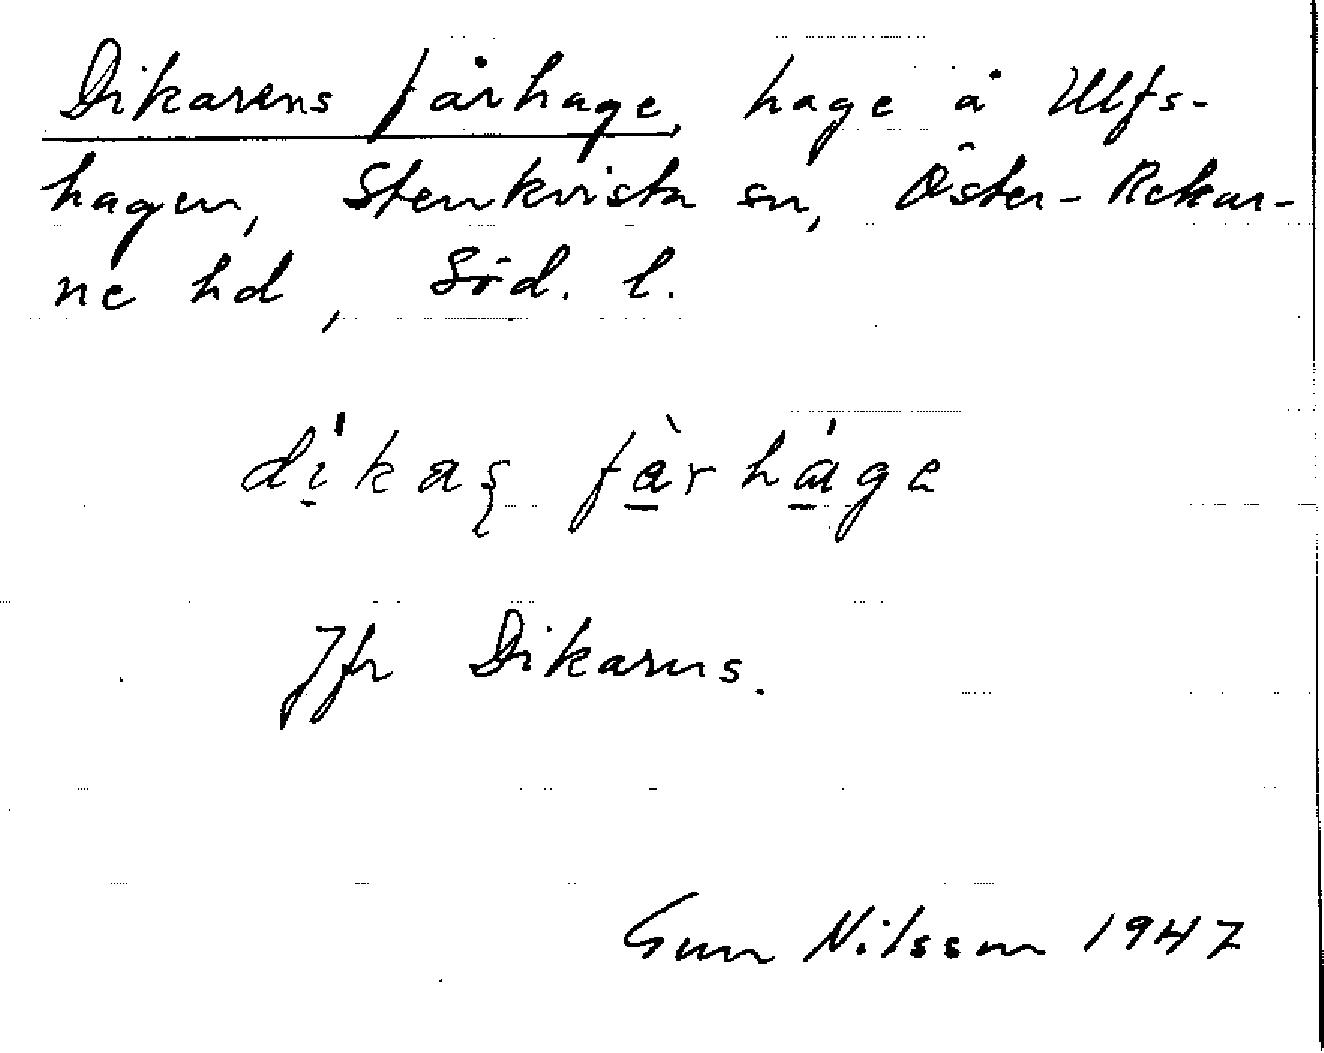 Dikarens fårhage, hage å Ulfs-
hagen, Stenkvista sn, Öster-Rekar-
ne hd, Söd. l.
fàrháge
Jfr Dikarens.
Gun Nilsson 1947